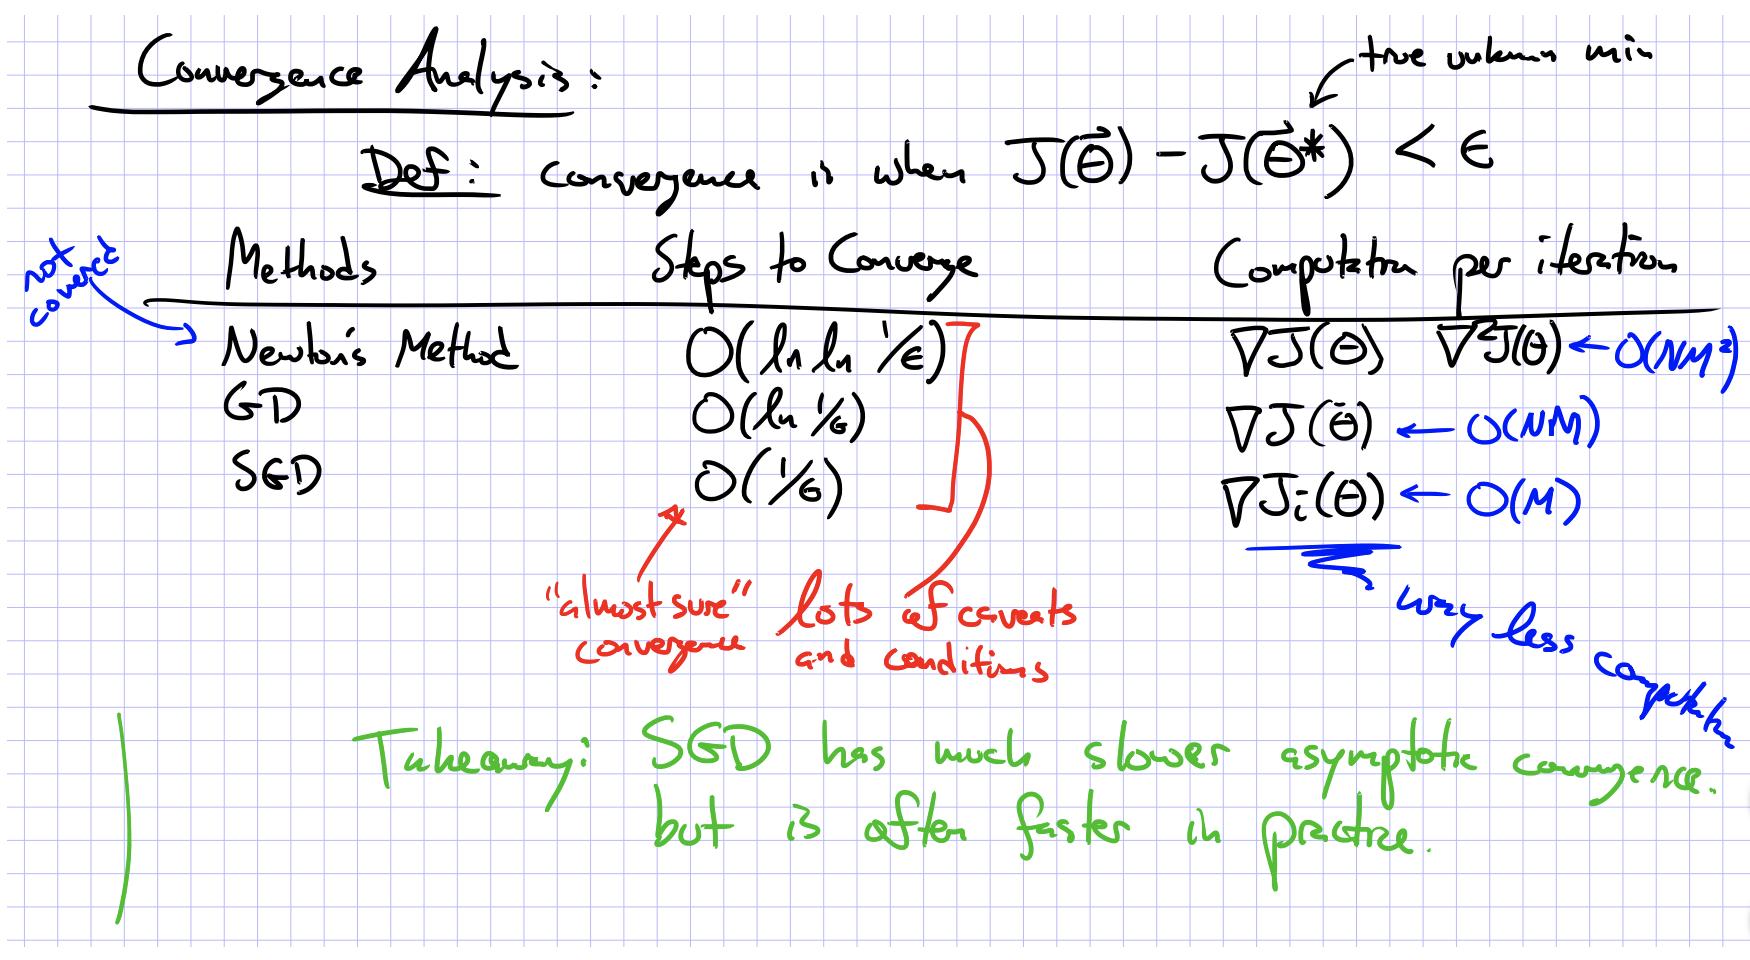 Convergence Analysis:
true unknown min
Def: convergence is when J(θ⃗) - J(θ⃗*) < ϵ
not covered
Methods Steps to Converge Computation per iteration
Newton's Method O(ln ln 1/ϵ) ∇J(θ) ∇²J(θ) ← O(NM²)
GD O(ln 1/ϵ) ∇J(θ) ← O(NM)
SGD O(1/ϵ) ∇Jᵢ(θ) ← O(M)
"almost sure"
convergence
lots of caveats
and conditions
way less computation
Takeaway: SGD has much slower asymptotic convergence.
but is often faster in practice.